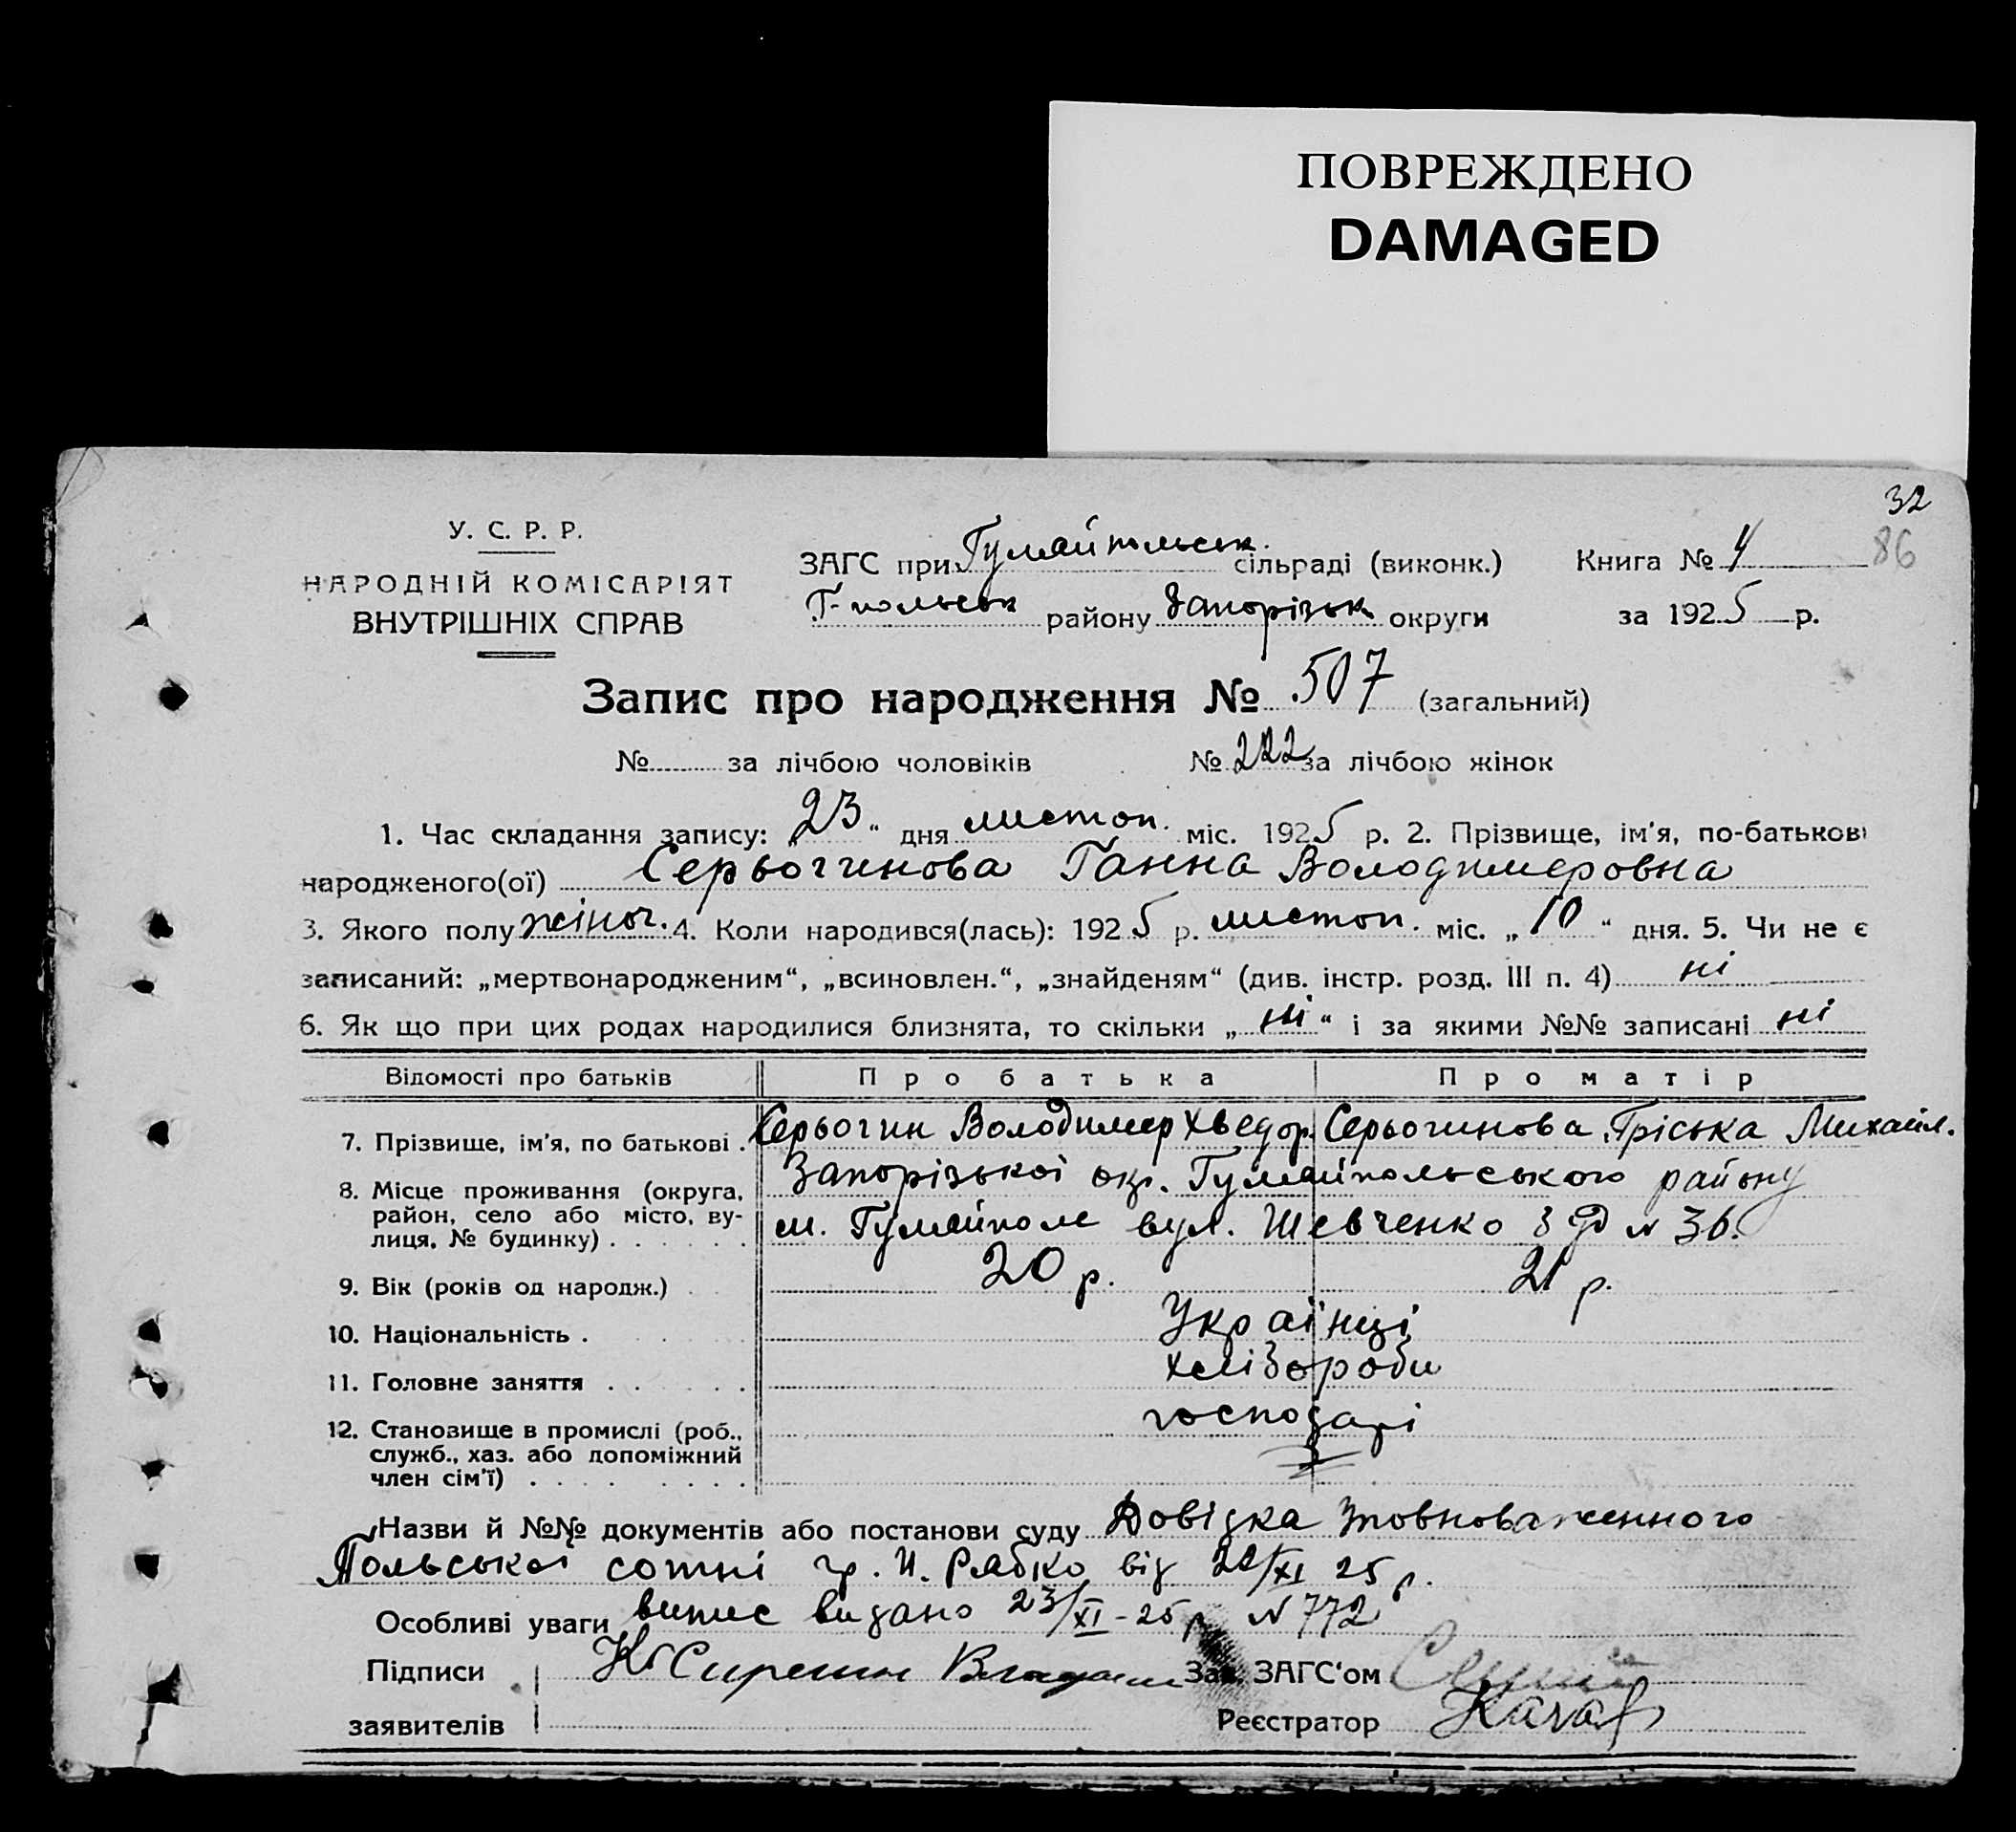 ПОВРЕЖДЕНО
DAMAGED
32
86
У. С. Р. Р.
НАРОДНІЙ КОМІСАРІЯТ
ВНУТРІШНІХ СПРАВ
ЗАГС при Гуляйпольськ. сільраді (виконк.)
Г-польськ району Запорізьк округи
Книга № 4
за 1925 р.
Запис про народження № 507 (загальний)
№ за лічбою чоловіків № 222 за лічбою жінок
1. Час складання запису: „23“ дня листоп. міс. 1925 р. 2. Прізвище, ім'я, по-батькові
народженого(ої) Серьогинова Ганна Володимеровна
3. Якого полу жіноч. 4. Коли народився(лась): 1925 р. листоп. міс. „10“ дня. 5. Чи не є
записаний: „мертвонародженим“, „всиновлен.“, „знайденям“ (див. інстр. розд. III п. 4) ні
6. Як що при цих родах народилися близнята, то скільки „ні“ і за якими №№ записані ні
Відомості про батьків Про батька Про матір
7. Прізвище, ім'я, по батькові . Серьогин Володимер Хведор. Серьогинова Михайл.
8. Місце проживання (округа, район, село або місто, вулиця, № будинку) Запорізької окр. Гуляйпольського району
м. Гуляйполе вул. Шевченко № 36.
9. Вік (років од народж.) 20 р. 21 р.
10. Національність . Українці
11. Головне заняття хлібороби
12. Становище в промислі (роб., служб., хаз. або допоміжний член сім'ї) господарі
Назви й №№ документів або постанови суду Довідка
Польської сотні гр. И. Рябко від 22/XI 25 р.
Особливі уваги випис видано 23/XI-25 р № 772
Підписи
заявителів
Зав. ЗАГС'ом
Реєстратор